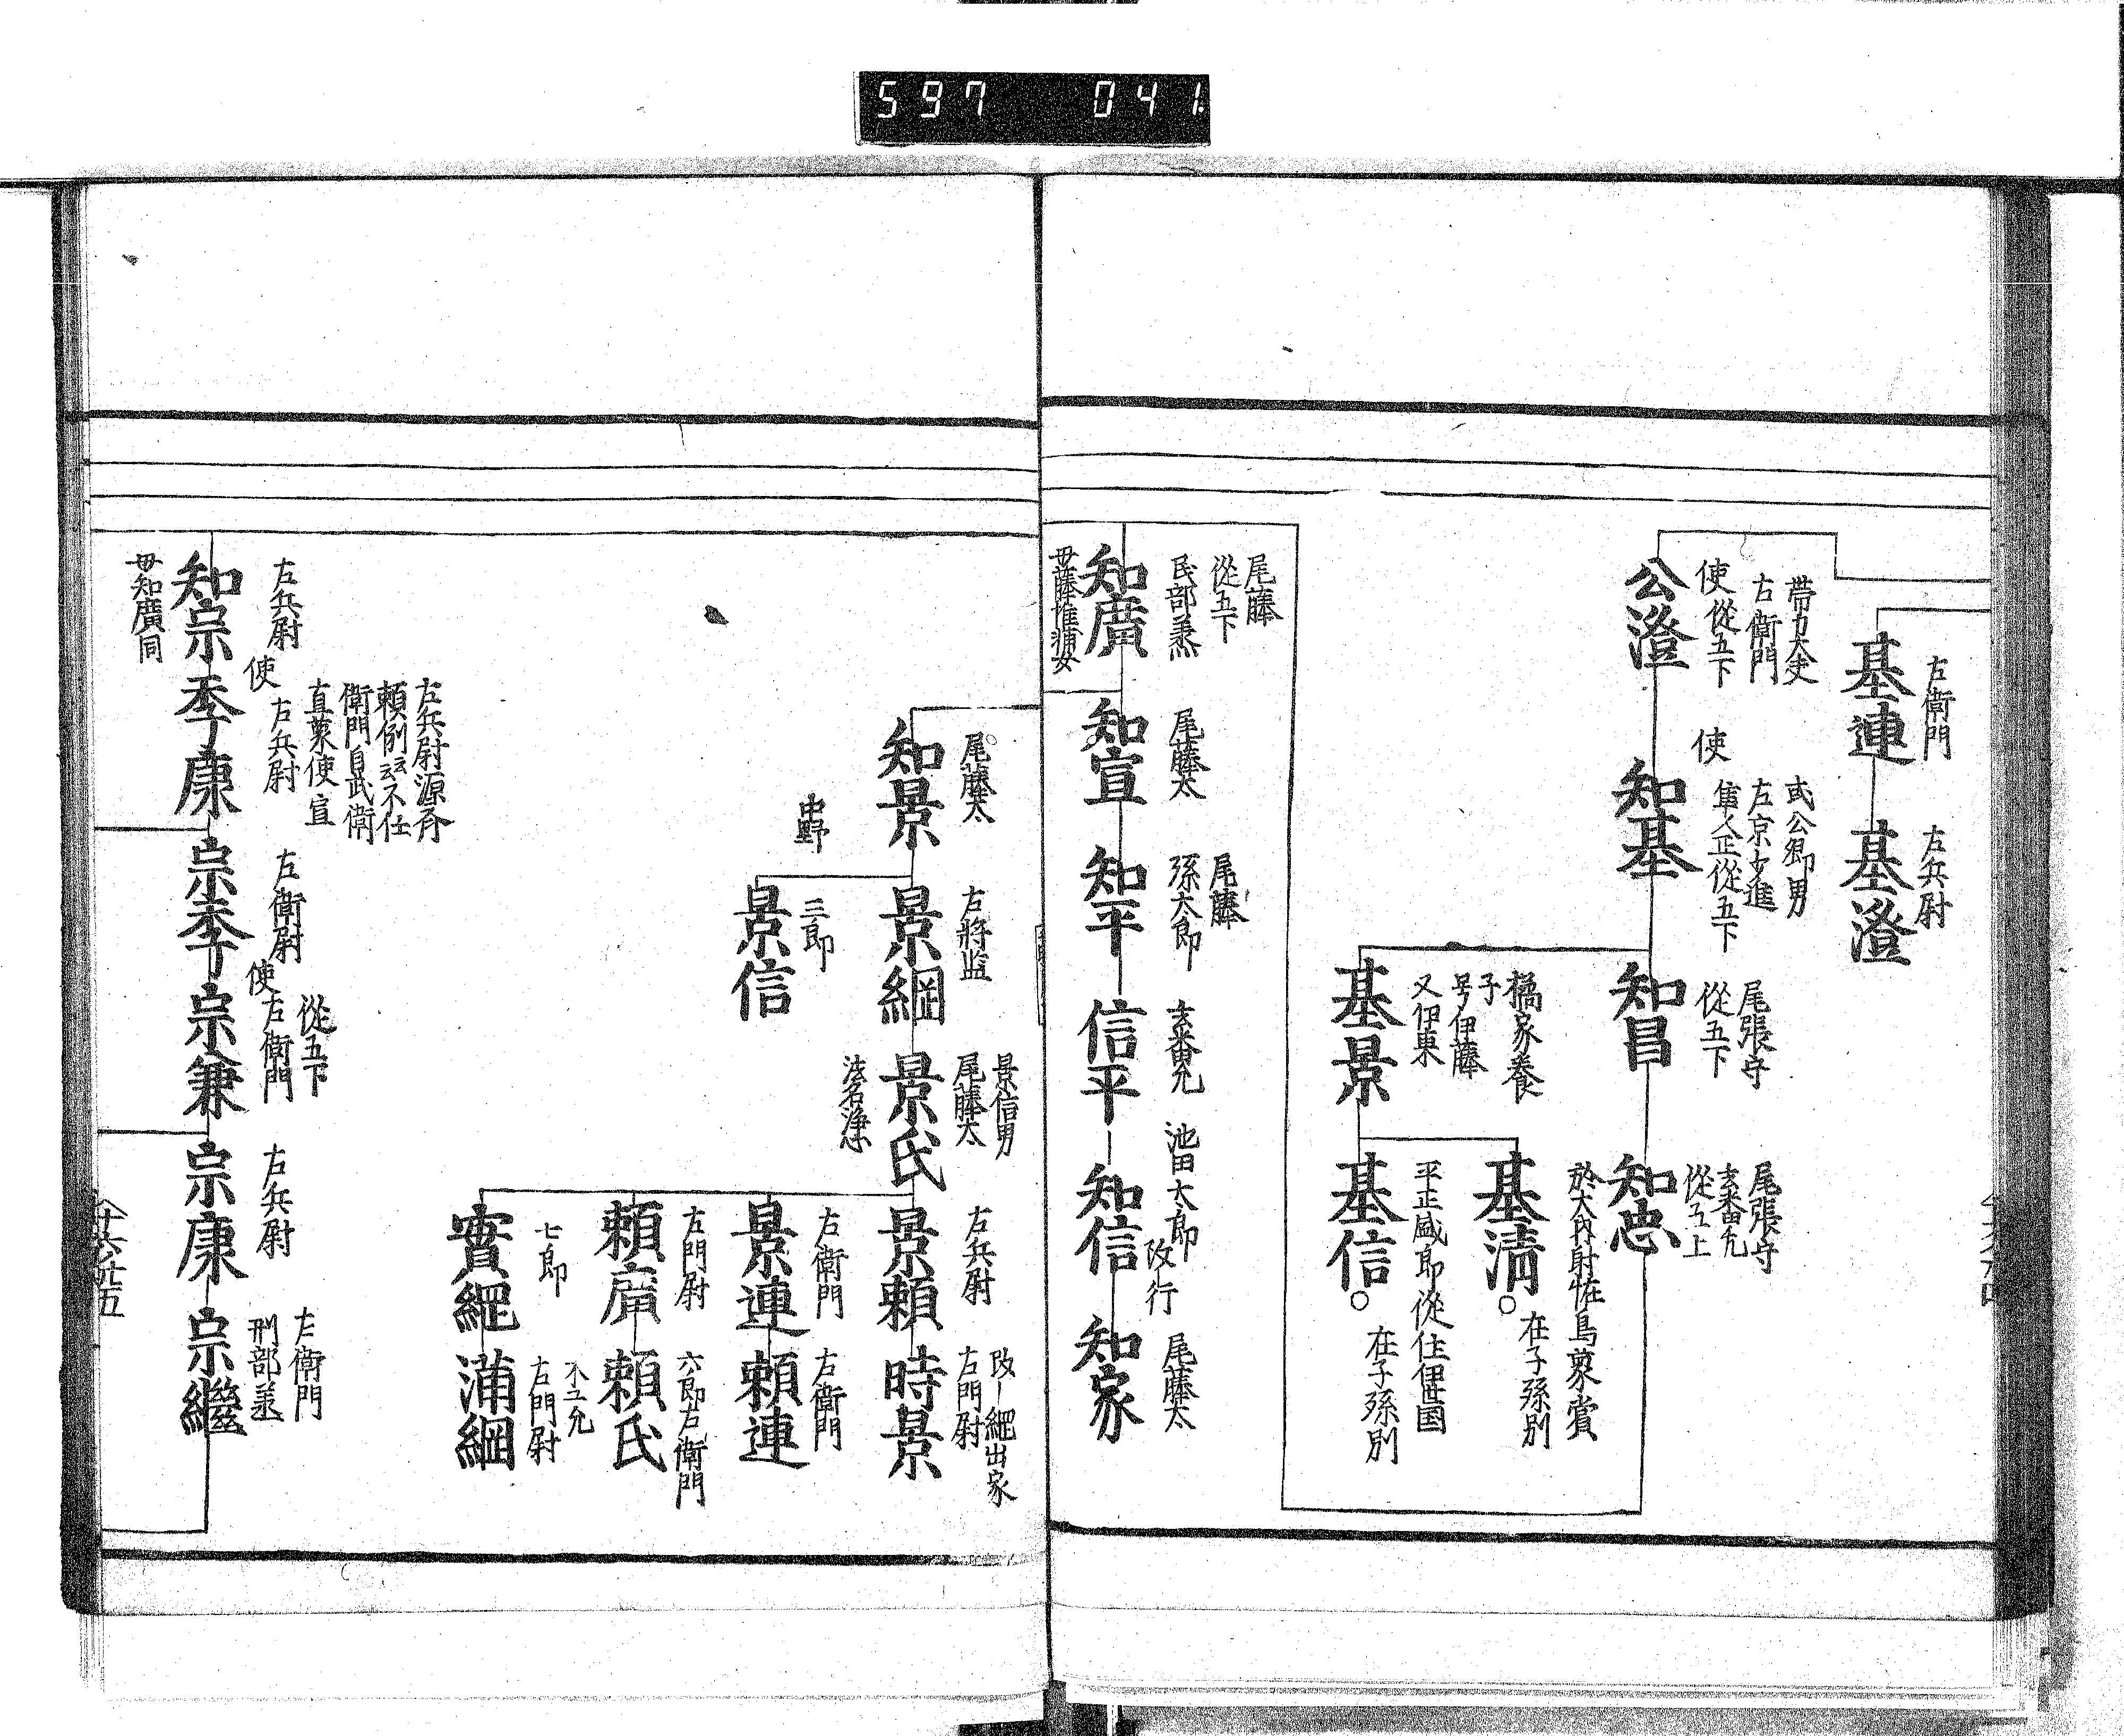 597 041
左衛門
基連
左兵尉
基澄
帯刀大吏
右衛門
使從五下
公澄
使
或公郷男
左京少進
隼人正從五下
知基
尾張守
從五下
知昌
尾張守
玄番允
從五上
知忠
橘家養
子
号伊藤
又伊東
基景
於大内射恠鳥蒙賞
基清
在子孫別
平正盛郎從住伊世国
基信
在子孫別
尾藤
從五下
民部丞
知廣
母藤惟備女
尾藤太
知宣
尾藤
孫太郎
知平
玄番允
信平
池田太郎
改行
知信
尾藤太
知家
尾藤太
知景
右將監
景綱
中野
三郎
景信
景信男
尾藤太
景氏
法名浄心
左兵尉
景頼
改—繩出家
右門尉
時景
右衛門
景連
右衛門
頼連
左門尉
頼廣
六郎右衛門
頼氏
七郎
實繩
木工允
右門尉
満綱
左兵尉
知宗
母知廣同
左兵尉源斉
頼例云云不仕
衛門自武衛
直蒙使宣
右兵尉
使
季康
左衛尉
宗季
使
從五下
左衛門
宗兼
右兵尉
宗康
左衛門
刑部丞
宗繼